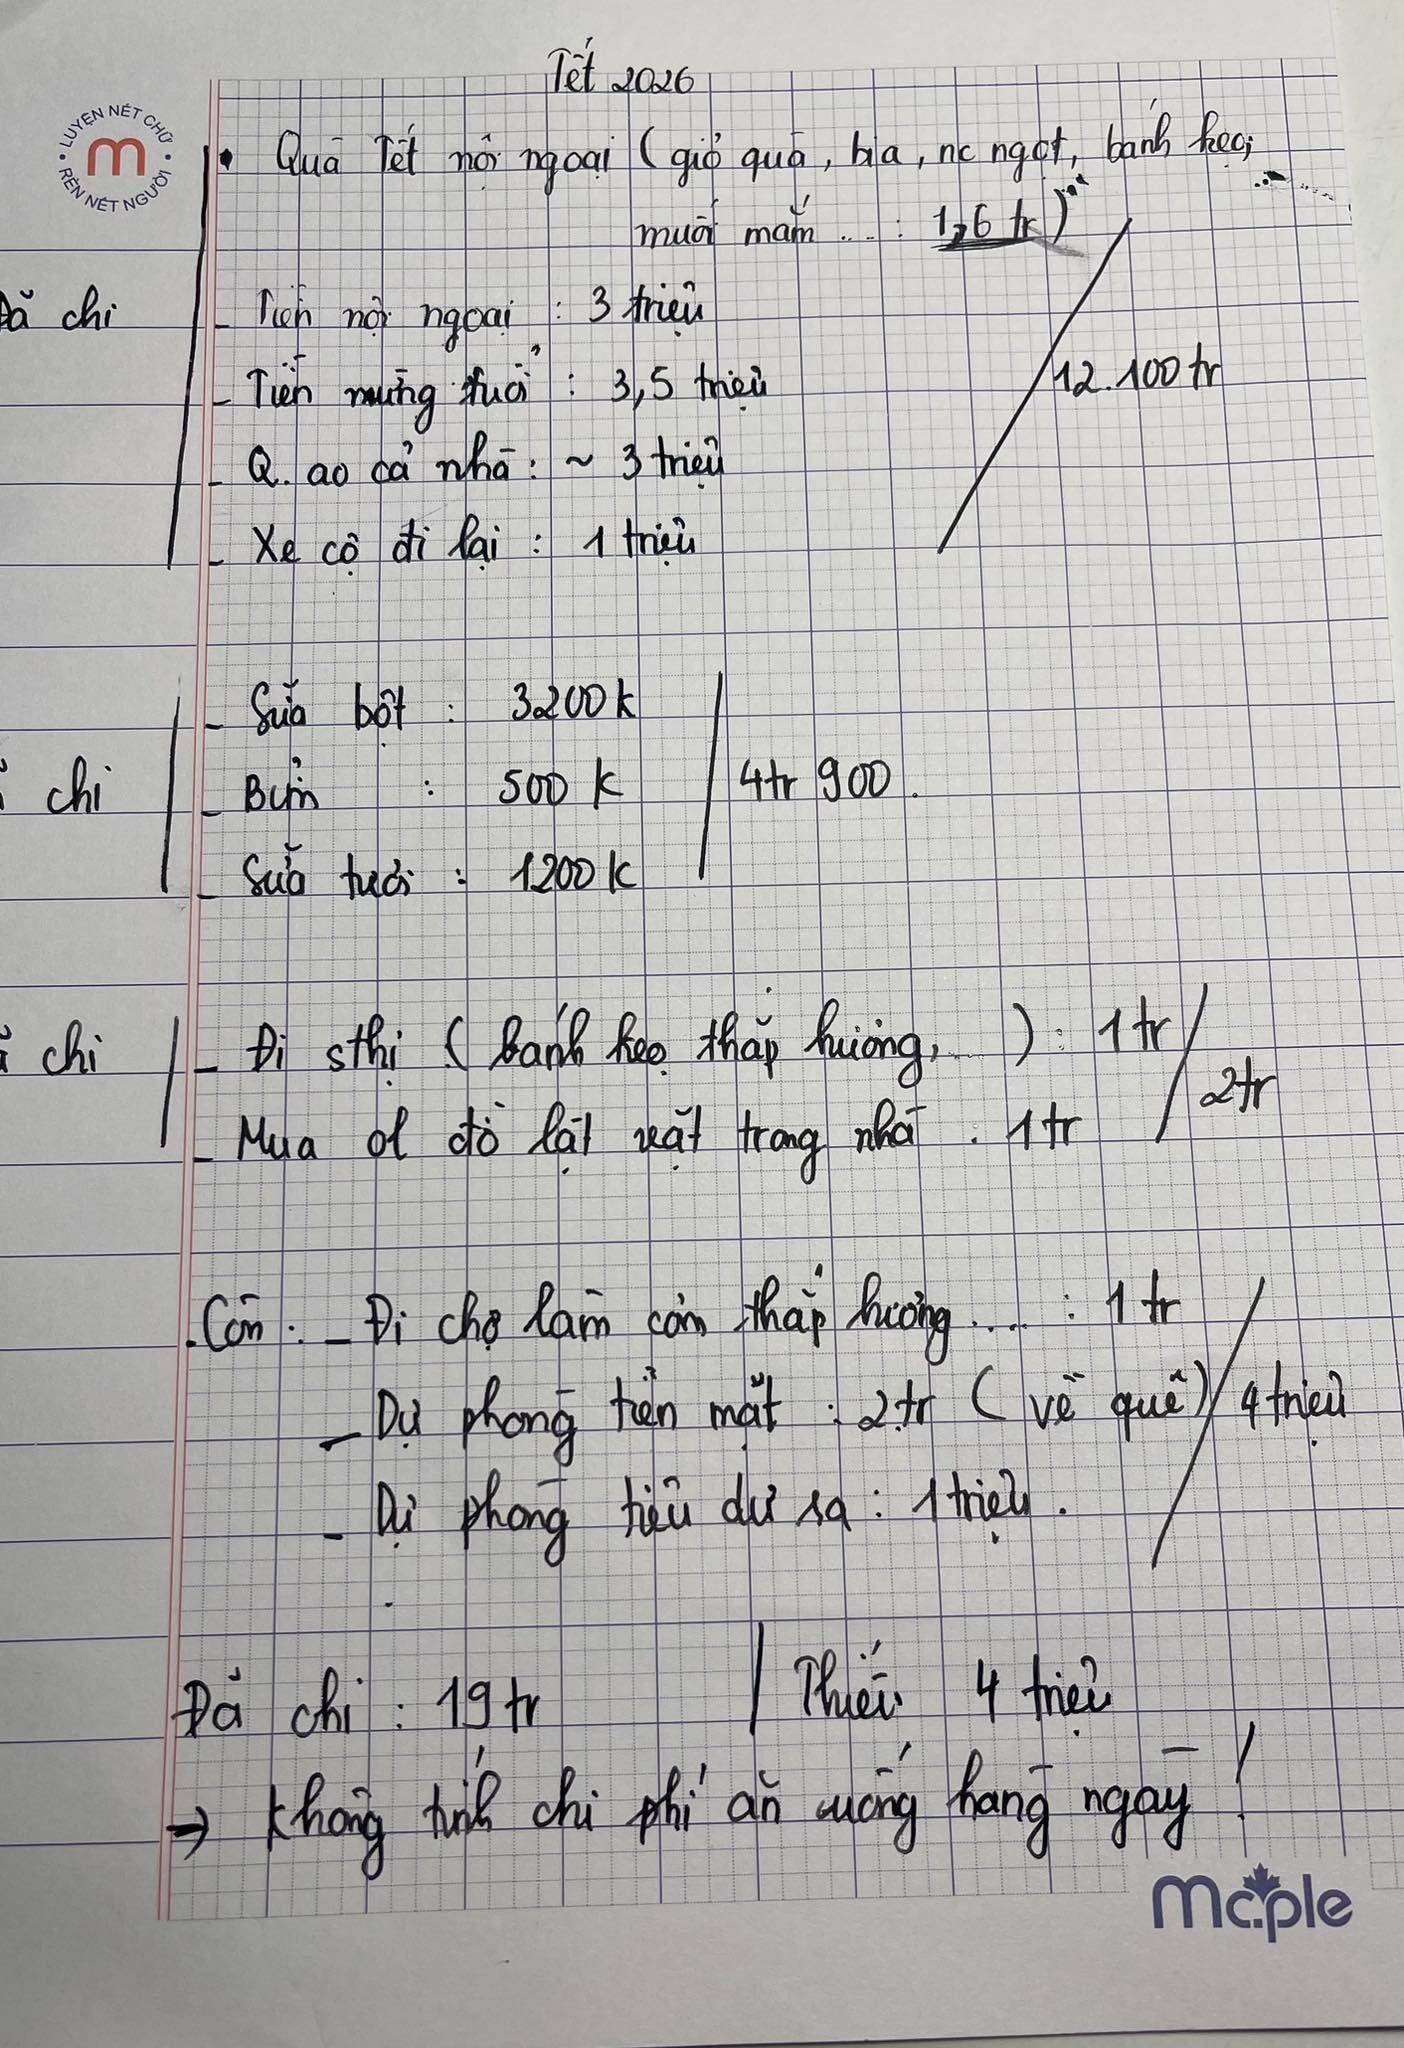 Tết 2026
LUYỆN NÉT CHỮ
m
RÈN NẾT NGƯỜI
• Quà Tết nội ngoại (giỏ quà, bia, nc ngọt, bánh kẹo,
muối mắm ... : 1,6 tr)
Đã chi
- Tiền nội ngoại : 3 triệu
- Tiền mừng tuổi : 3,5 triệu
12.100 tr
- Q. áo cả nhà : ~ 3 triệu
- Xe cộ đi lại : 1 triệu
- Sữa bột : 3200 k
chi
- Bỉm : 500 k
4tr 900.
- Sữa tươi : 1200 k
chi
- Đi sthị (bánh kẹo thắp hương, ...) : 1 tr
2tr
- Mua ol đồ lặt vặt trong nhà : 1 tr
. Còn : - Đi chợ làm cơm thắp hương .... : 1 tr
- Dự phòng tiền mặt : 2 tr (về quê)
4 triệu
- Dự phòng tiêu dư ra : 1 triệu.
Đã chi : 19 tr
Thiếu 4 triệu
→ không tính chi phí ăn uống hàng ngày !
maple